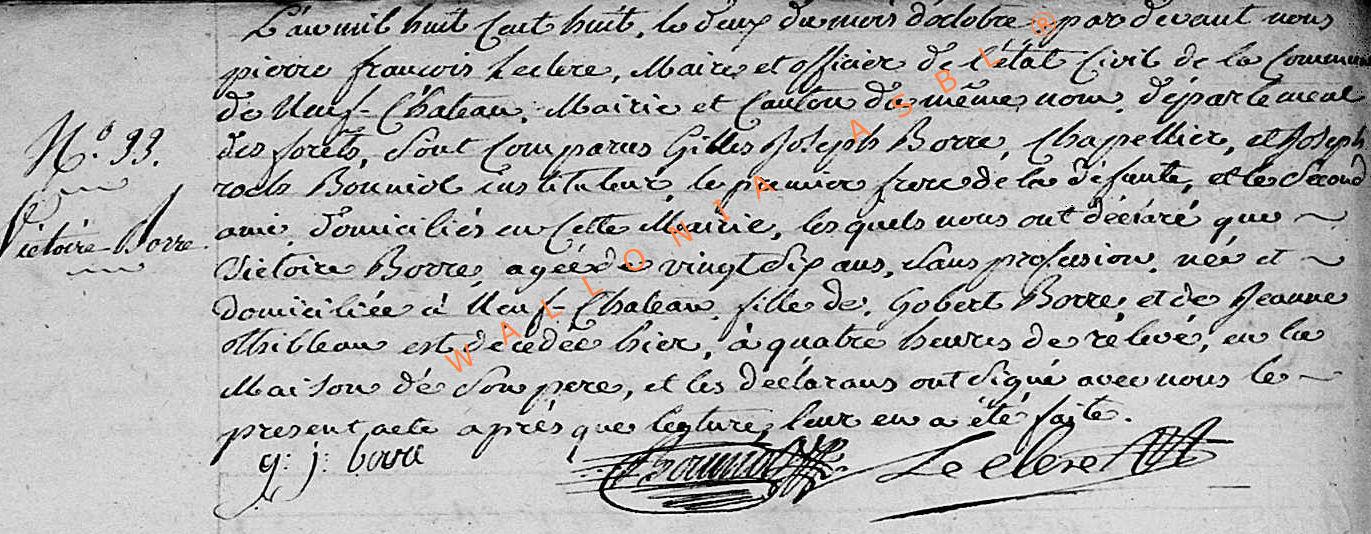 L'an mil huit Cent huit, le deux du mois d'octobre pardevant nous
pierre françois Leclere, Maire et officier de l'état Civil de la Commune
de Neuf-Château, Mairie et Canton du même nom, département
des forêts, Sont Comparus Gilles Joseph Borre, Chapellier, et Joseph
N.° 93.
roch Bouniol instituteur, le premier frere de la défunte, et le Second
ami, domiciliés en Cette Mairie, lesquels nous ont déclaré que ~
Victoire Borre.
Victoire Borre, agée de vingt dix ans, Sans profession, née et ~
Domiciliée à Neuf-Chateau, fille de Gobert Borre, et de Jeanne
thibleau est décédée hier, à quatre heures de relevé, en la
Maison de Son pere, et les déclarans ont Signé avec nous le ~
present acte après que lecture leur en a été faite.
g: j: borre Leclere
WALLONIA ASBL ®